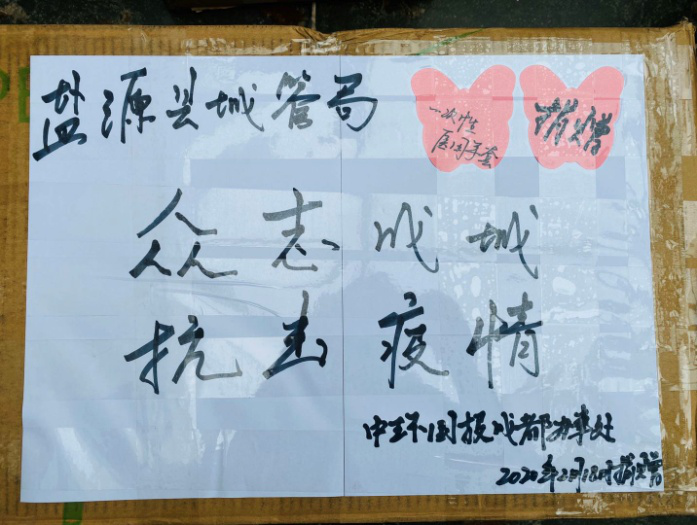 盐源县城管局
一次性
医用手套
捐赠
众志成城
抗击疫情
中环国投成都办事处
2020年2月18日捐赠